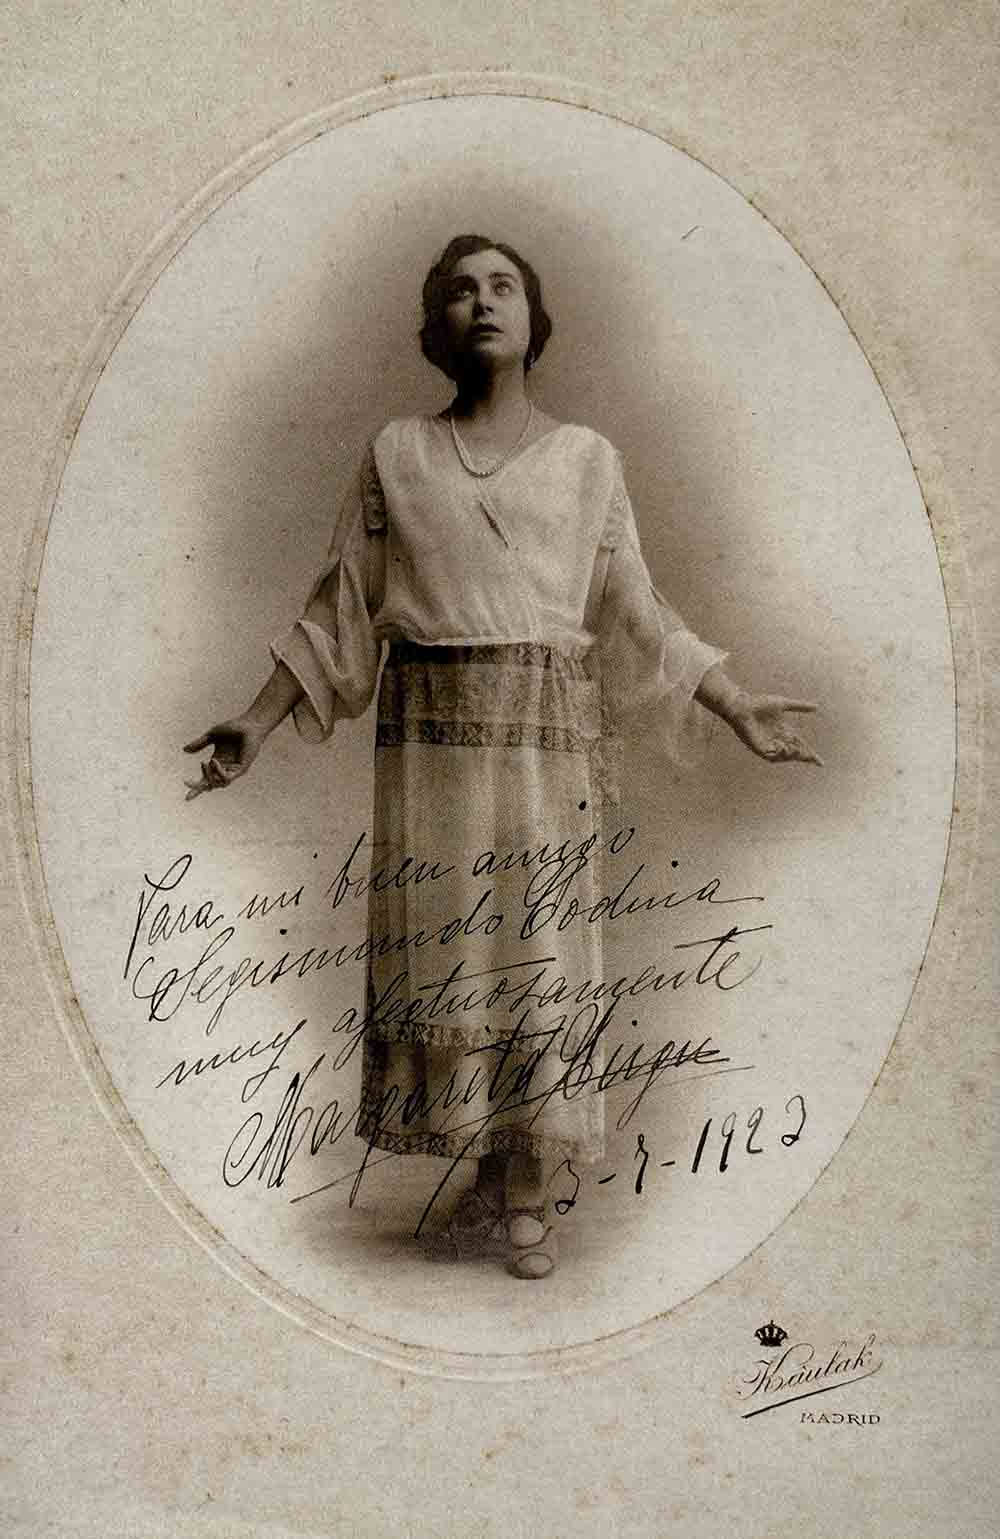 Para mi buen amigo
Segismundo Codina
muy afectuosamente
Margarita Xirgu
3-7-1923
Kâulak
MADRID